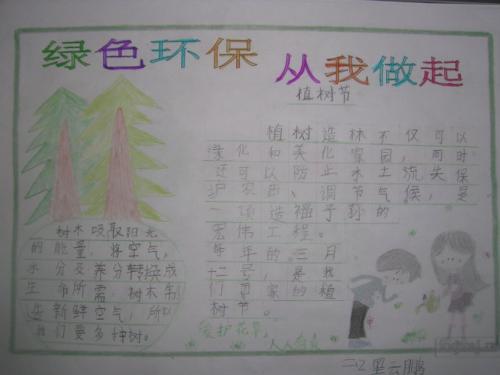 绿色环保 从我做起
植树节
植树造林不仅可以
绿化和美化家园，同时
还可以防止水土流失保
护农田、调节气候，是
一项造福子孙的
宏伟工程。
年年的三月
十二号，是我
们国家的植
树节。
树木吸取阳光
的能量，将空气，
水分及养分转换成
生命所需，树木制
造新鲜空气，所以
我们要多种树。
爱护花草
人人有责